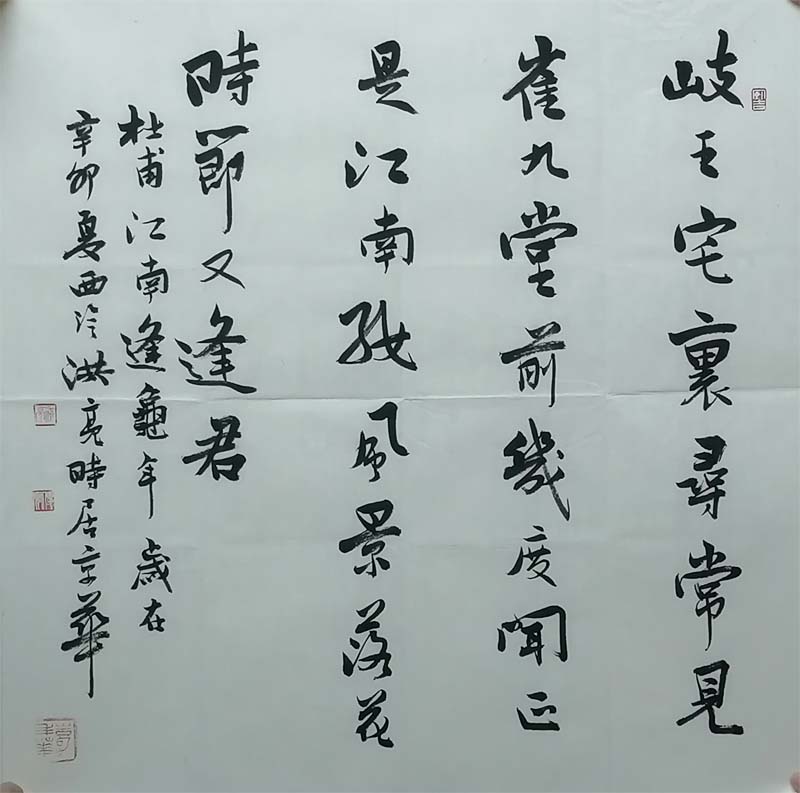 岐王宅裏尋常見
崔九堂前幾度聞正
是江南好風景落花
時節又逢君
杜甫江南逢龜年歲在
辛卯夏西泠洪亮時居京華